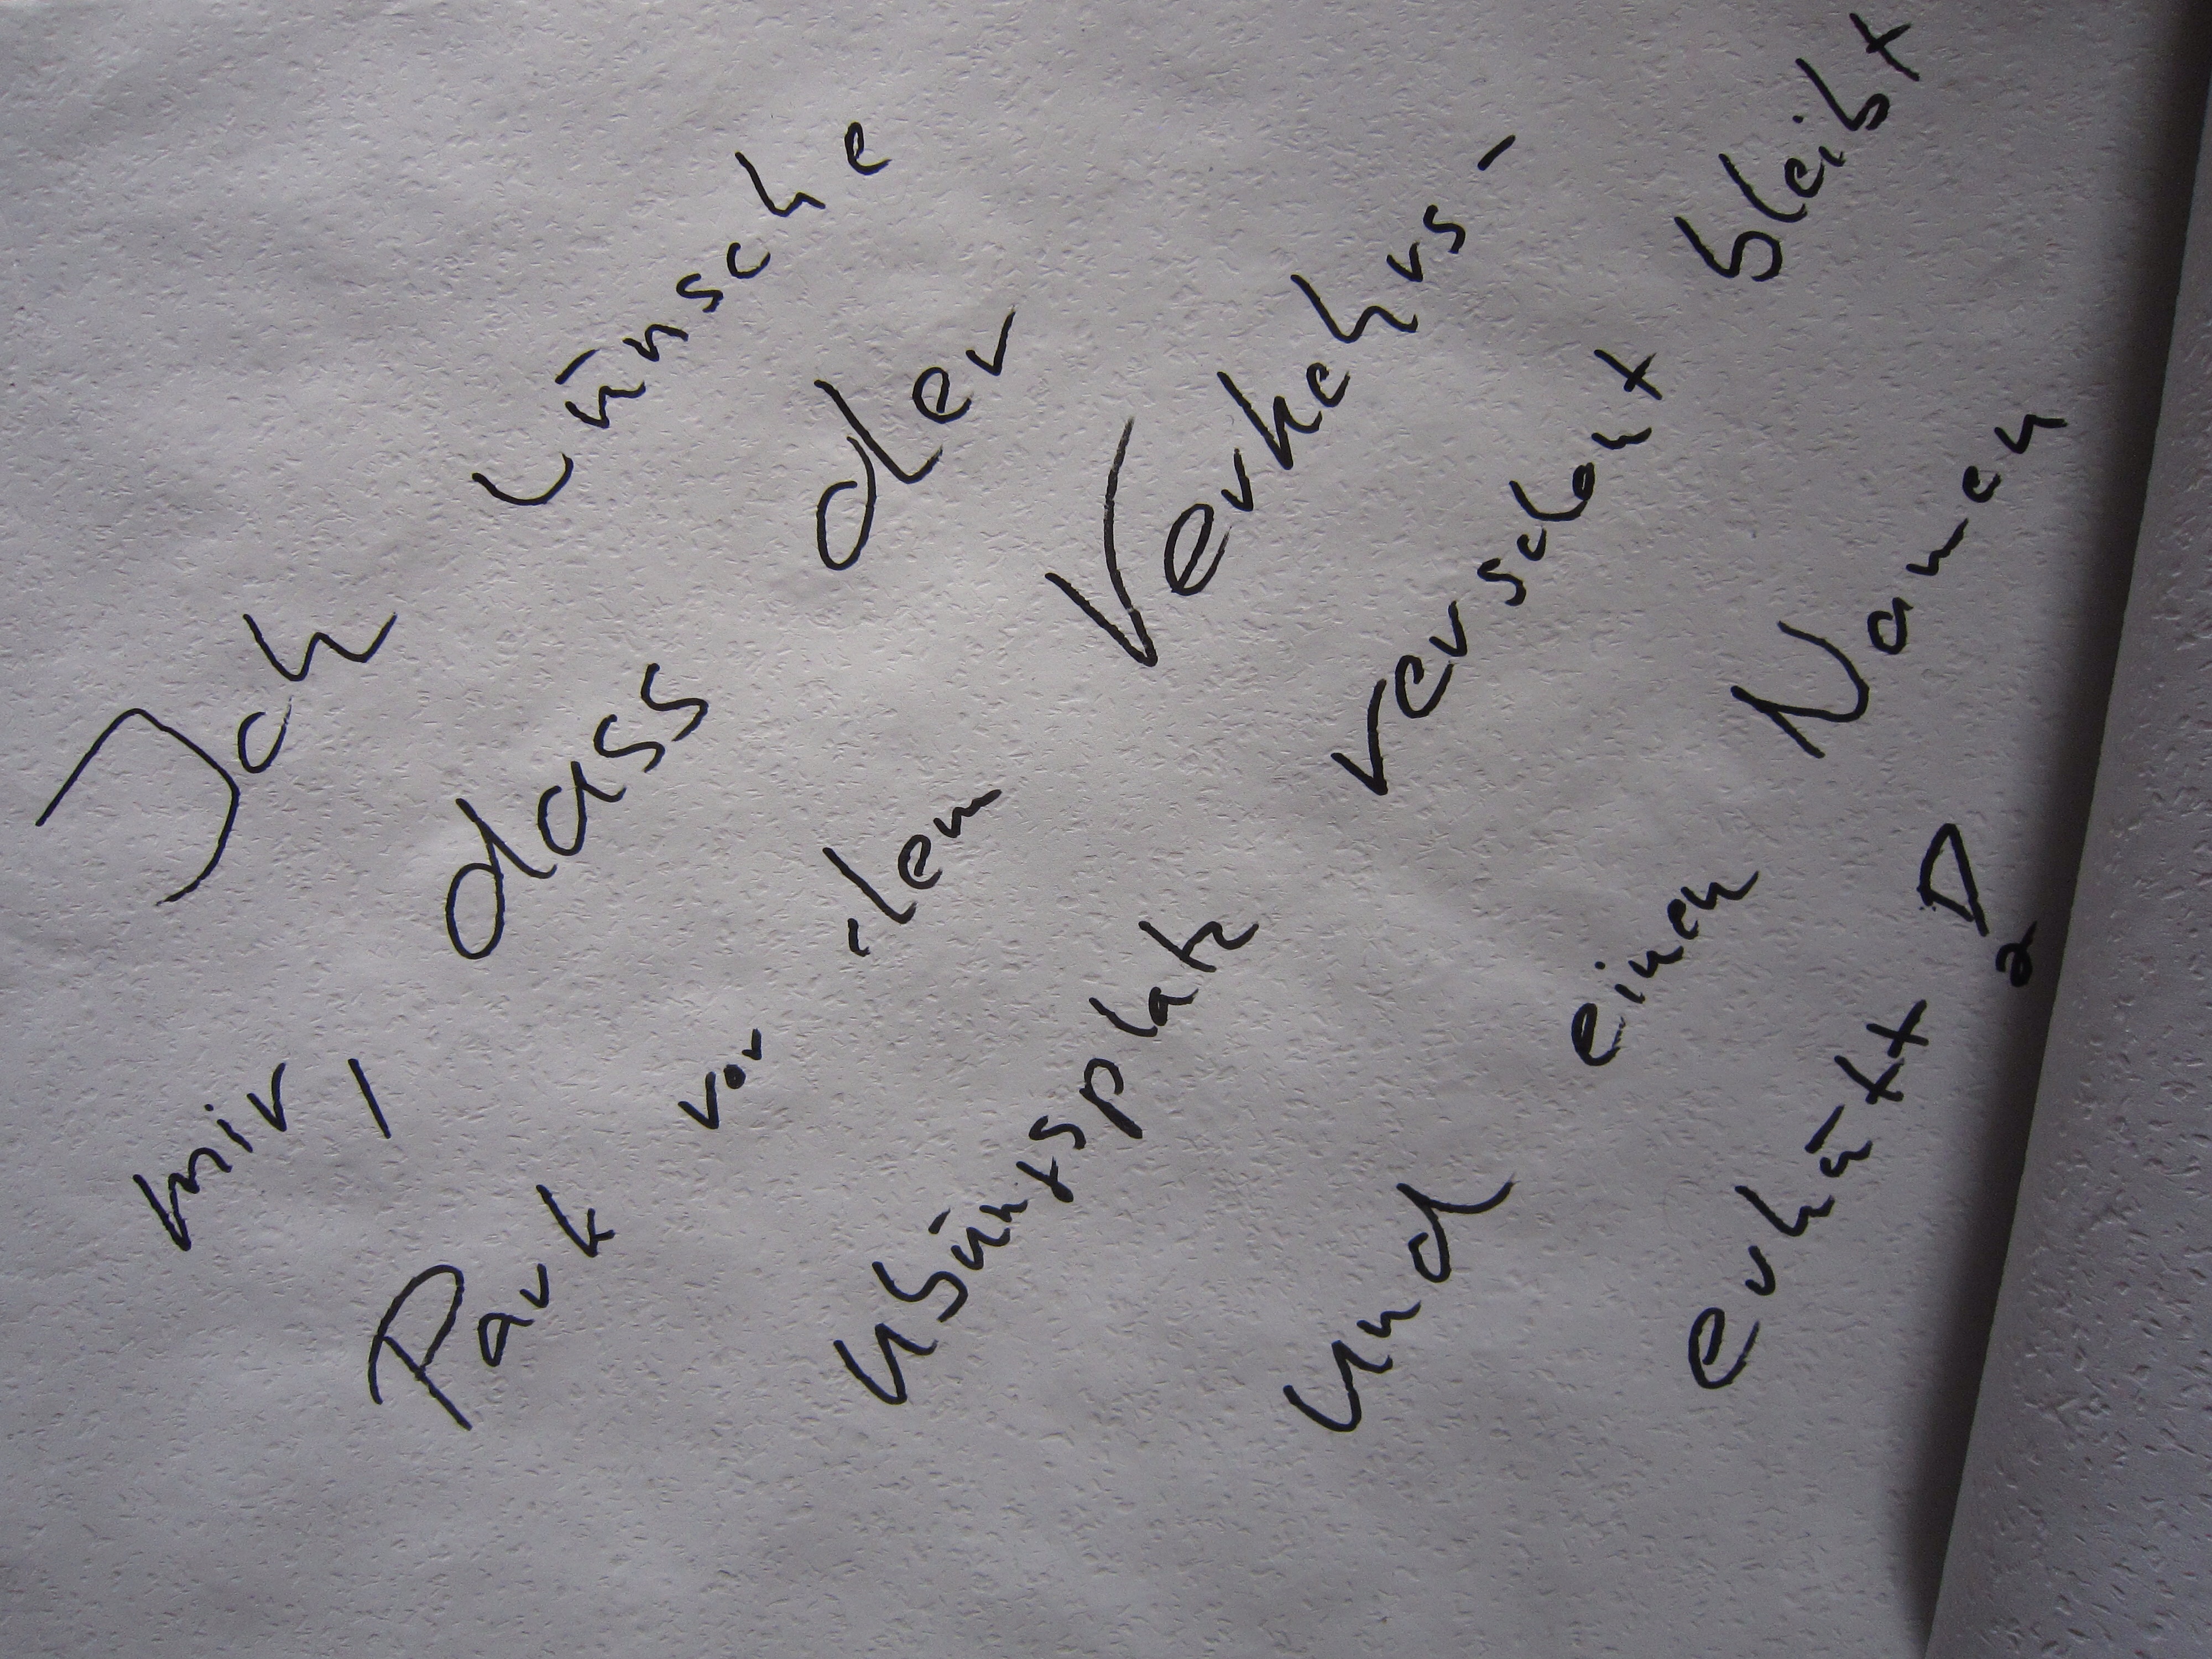 Ich wünsche
mir, dass der
Park vor dem Verkehrs-
ubüngsplatz verschont bleibt
und einen Namen
erhält!